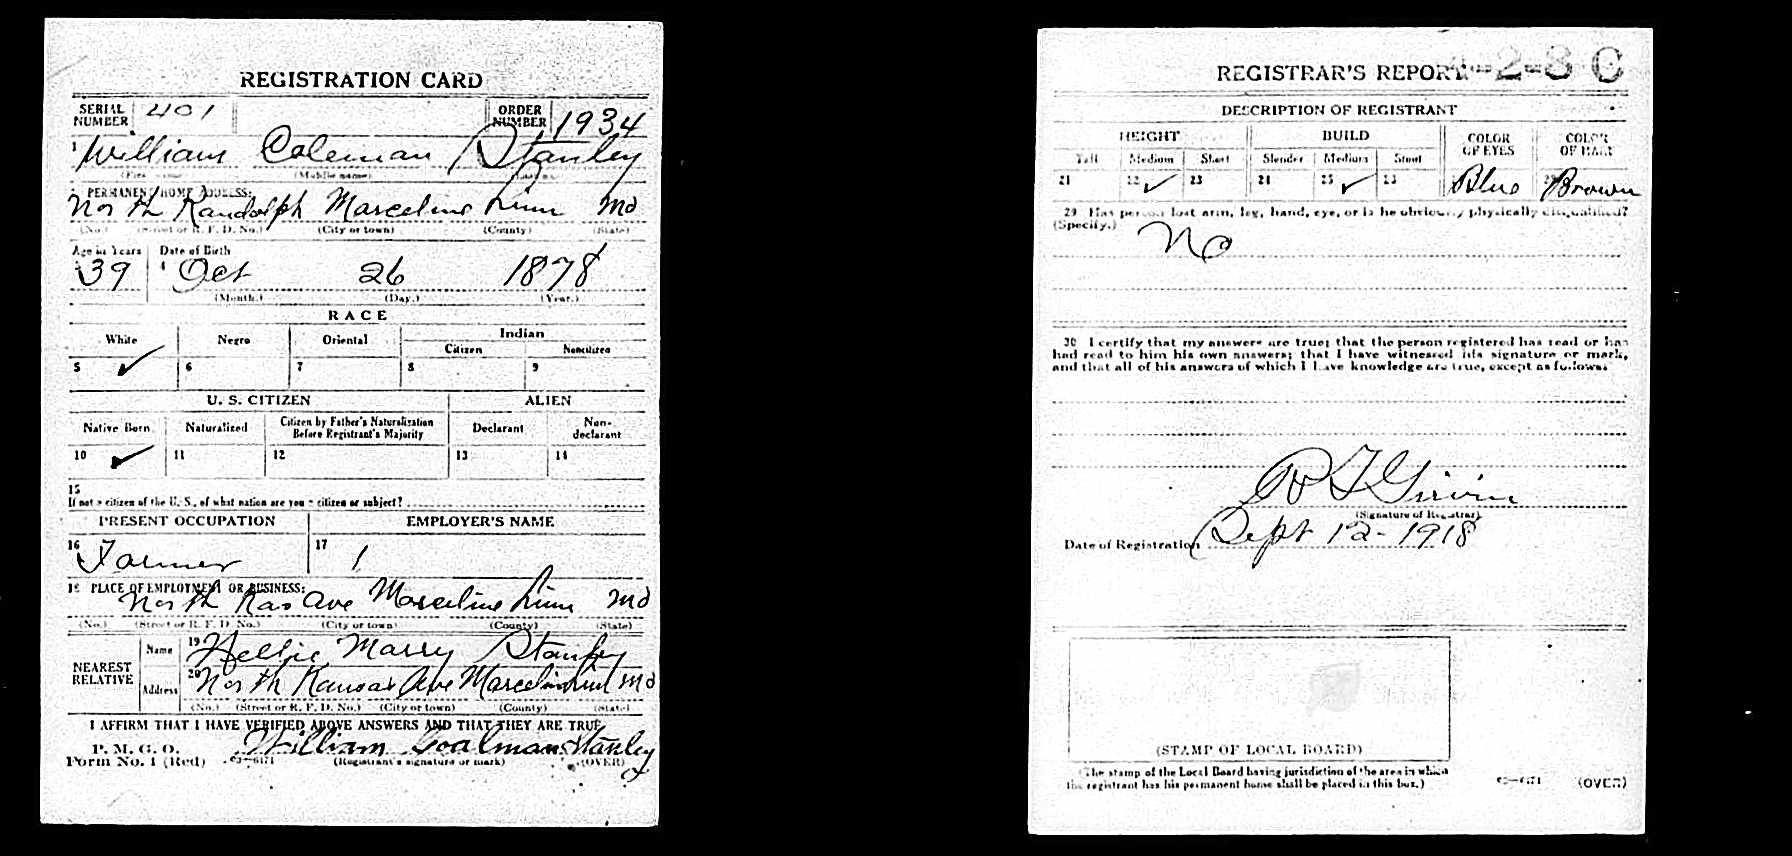 REGISTRATION CARD
SERIAL NUMBER 401 ORDER NUMBER 1934
1 William Coleman Stanley
(First name) (Middle name) (Last name)
2 PERMANENT HOME ADDRESS:
North Randolph Marceline Linn Mo
(No.) (Street or R. F. D. No.) (City or town) (County) (State)
Age in Years Date of Birth
3 39 4 Oct 26 1878
(Month.) (Day.) (Year.)
RACE
White Negro Oriental Indian
Citizen Noncitizen
5 ✓ 6 7 8 9
U. S. CITIZEN ALIEN
Native Born Naturalized Citizen by Father's Naturalization Before Registrant's Majority Declarant Non-declarant
10 ✓ 11 12 13 14
15
If not a citizen of the U. S., of what nation are you a citizen or subject?
PRESENT OCCUPATION EMPLOYER'S NAME
16 Farmer 17 1
18 PLACE OF EMPLOYMENT OR BUSINESS:
North Kas Ave Marceline Linn Mo
(No.) (Street or R. F. D. No.) (City or town) (County) (State)
NEAREST RELATIVE
Name 19 Nellie Marry Stanley
Address 20 North Kansas Ave Marceline Linn Mo
(No.) (Street or R. F. D. No.) (City or town) (County) (State)
I AFFIRM THAT I HAVE VERIFIED ABOVE ANSWERS AND THAT THEY ARE TRUE
P. M. G. O.
Form No. 1 (Red) 03—6171 William Coalman Stanley
(Registrant's signature or mark) (OVER)
REGISTRAR'S REPORT 2-3 C
DESCRIPTION OF REGISTRANT
HEIGHT BUILD COLOR OF EYES COLOR OF HAIR
Tall Medium Short Slender Medium Stout
21 22 ✓ 23 24 25 ✓ 26 Blue 28 Brown
29 Has person lost arm, leg, hand, eye, or is he obviously physically disqualified?
(Specify.) No
30 I certify that my answers are true; that the person registered has read or has
had read to him his own answers; that I have witnessed his signature or mark,
and that all of his answers of which I have knowledge are true, except as follows:
Girvin
(Signature of Registrar)
Date of Registration Sept 12-1918
(STAMP OF LOCAL BOARD)
(The stamp of the Local Board having jurisdiction of the area in which
the registrant has his permanent home shall be placed in this box.)
03—6171 (OVER)